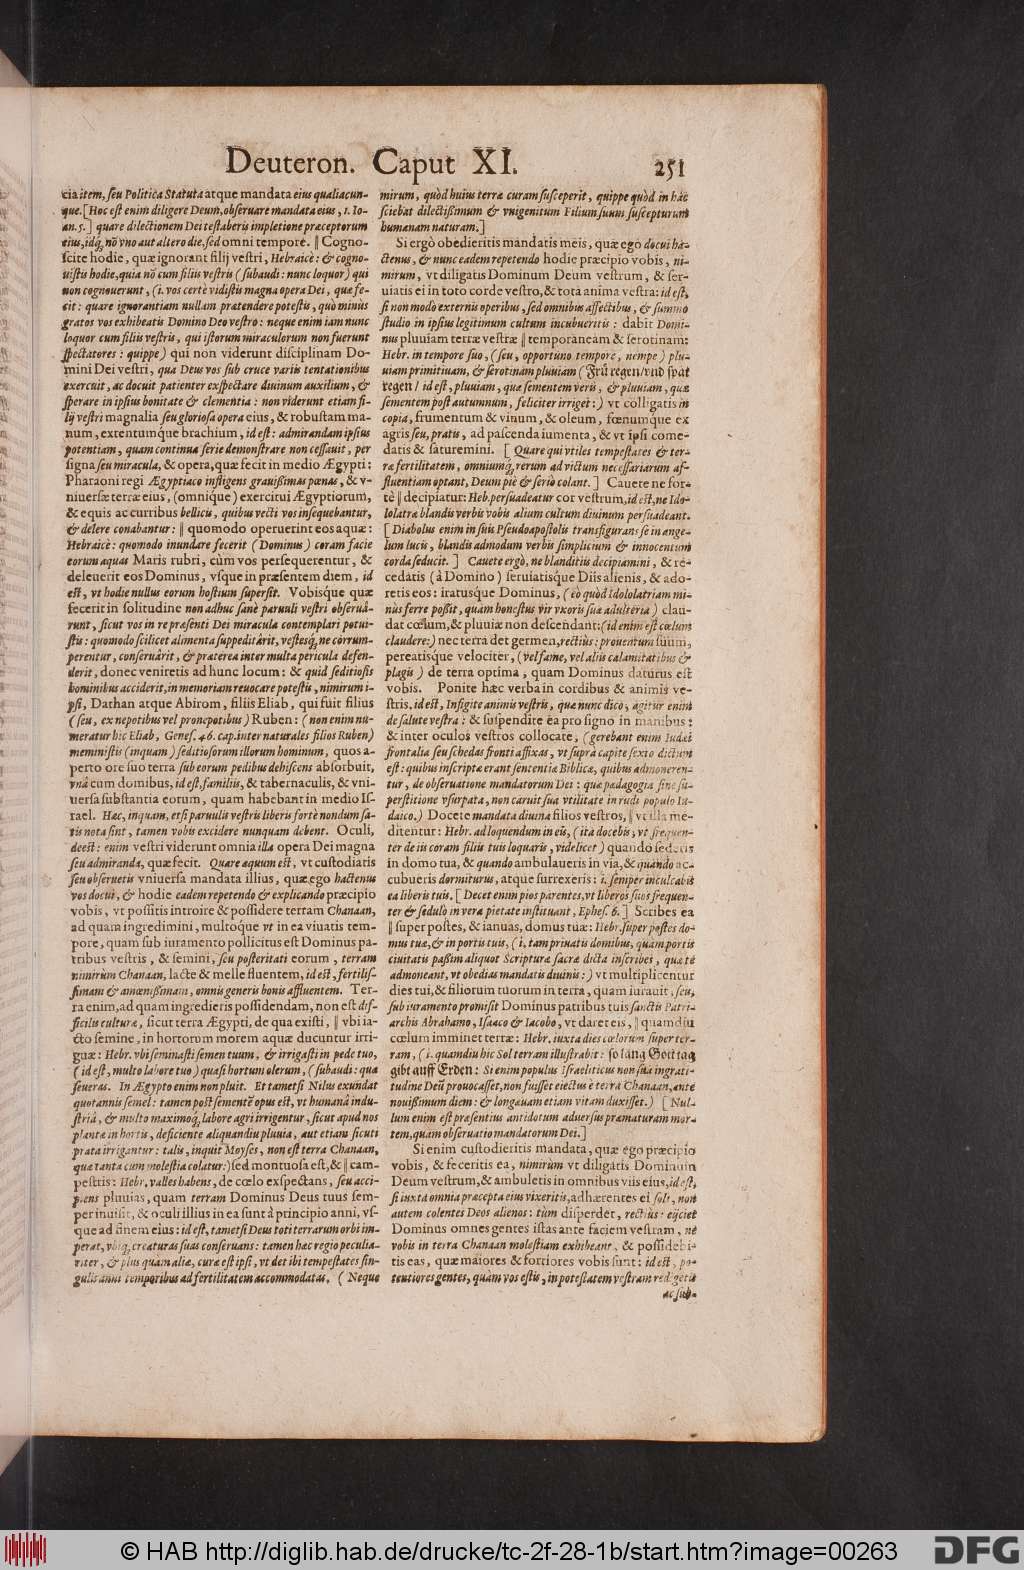 Deuteron. Caput XI.
251
cia item, seu Politica Statuta atque mandata eius qualiacun-
que. [Hoc est enim diligere Deum, obseruare mandata eius, 1. Io-
an. 5.] quare dilectionem Dei testaberis impletione præceptorum
eius, idq́; nō vno aut altero die, sed omni tempore. ‖ Cogno-
scite hodie, quæ ignorant filij vestri, Hebraicè: & cogno-
uistis hodie, quia nō cum filiis vestris (subaudi: nunc loquor) qui
non cognouerunt, (i. vos certè vidistis magna opera Dei, quæ fe-
cit: quare ignorantiam nullam prætendere potestis, quò minùs
gratos vos exhibeatis Domino Deo vestro: neque enim iam nunc
loquor cum filiis vestris, qui istorum miraculorum non fuerunt
spectatores: quippe) qui non viderunt disciplinam Do-
mini Dei vestri, qua Deus vos sub cruce variis tentationibus
exercuit, ac docuit patienter exspectare diuinum auxilium, &
sperare in ipsius bonitate & clementia: non viderunt etiam fi-
lij vestri magnalia seu gloriosa opera eius, & robustam ma-
num, extentumque brachium, id est: admirandam ipsius
potentiam, quam continua serie demonstrare non cessauit, per
signa seu miracula, & opera, quæ fecit in medio Ægypti:
Pharaoni regi Ægyptiaco infligens grauißimas pœnas, & v-
niuersæ terræ eius, (omnique) exercitui Ægyptiorum,
& equis ac curribus bellicis, quibus vecti vos insequebantur,
& delere conabantur: ‖ quomodo operuerint eos aquæ:
Hebraicè: quomodo inundare fecerit (Dominus) coram facie
eorum aquas Maris rubri, cùm vos persequerentur, &
deleuerit eos Dominus, vsque in præsentem diem, id
est, vt hodie nullus eorum hostium supersit. Vobisque quæ
fecerit in solitudine non adhuc sanè paruuli vestri obseruâ-
runt, sicut vos in re præsenti Dei miracula contemplari potui-
stis: quomodo scilicet alimenta suppeditârit, vestesq́; ne corrum-
perentur, conseruârit, & præterea inter multa pericula defen-
derit, donec veniretis ad hunc locum: & quid seditiosis
hominibus acciderit, in memoriam reuocare potestis, nimirum i-
psi, Dathan atque Abirom, filiis Eliab, qui fuit filius
(seu, ex nepotibus vel pronepotibus) Ruben: (non enim nu-
meratur hic Eliab, Genes. 46. cap. inter naturales filios Ruben)
meministis (inquam) seditiosorum illorum hominum, quos a-
perto ore suo terra sub eorum pedibus dehiscens absorbuit,
vnâ cum domibus, id est, familiis, & tabernaculis, & vni-
uersa substantia eorum, quam habebant in medio Is-
rael. Hæc, inquam, etsi paruulis vestris liberis fortè nondum sa-
tis nota sint, tamen vobis excidere nunquam debent. Oculi,
deest: enim vestri viderunt omnia illa opera Dei magna
seu admiranda, quæ fecit. Quare æquum est, vt custodiatis
seu obseruetis vniuersa mandata illius, quæ ego hactenus
vos docui, & hodie eadem repetendo & explicando præcipio
vobis, vt possitis introire & possidere terram Chanaan,
ad quam ingredimini, multoque vt in ea viuatis tem-
pore, quam sub iuramento pollicitus est Dominus pa-
tribus vestris, & semini, seu posteritati eorum, terram
nimirum Chanaan, lacte & melle fluentem, id est, fertilis-
simam & amœnißimam, omnis generis bonis affluentem. Ter-
ra enim, ad quam ingredieris possidendam, non est dif-
ficilis culturæ, sicut terra Ægypti, de qua existi, ‖ vbi ia-
cto semine, in hortorum morem aquæ ducuntur irri-
guæ: Hebr. vbi seminasti semen tuum, & irrigasti in pede tuo,
(id est, multo labore tuo) quasi hortum olerum, (subaudi: quæ
seueras. In Ægypto enim non pluit. Et tametsi Nilus exundat
quotannis semel: tamen post sementē opus est, vt humanâ indu-
striâ, & multo maximoq́; labore agri irrigentur, sicut apud nos
plantæ in hortis, deficiente aliquandiu pluuia, aut etiam sicuti
prata irrigantur: talis, inquit Moyses, non est terra Chanaan,
quæ tanta cum molestia colatur:) sed montuosa est, & ‖ cam-
pestris: Hebr. valles habens, de cœlo exspectans, seu acci-
piens pluuias, quam terram Dominus Deus tuus sem-
per inuisit, & oculi illius in ea sunt à principio anni, vs-
que ad finem eius: id est, tametsi Deus toti terrarum orbi im-
perat, vbiq; creaturas suas conseruans: tamen hæc regio peculia-
riter, & plus quam alia, curæ est ipsi, vt det ibi tempestates sin-
gulis annis temporibus ad fertilitatem accommodatas. (Neque
mirum, quòd huius terræ curam susceperit, quippe quòd in hâc
sciebat dilectißimum & vnigenitum Filium suum suscepturum
humanam naturam.]
Si ergò obedieritis mandatis meis, quæ ego docui ha-
ctenus, & nunc eadem repetendo hodie præcipio vobis, ni-
mirum, vt diligatis Dominum Deum vestrum, & ser-
uiatis ei in toto corde vestro, & tota anima vestra: id est,
si non modo externis operibus, sed omnibus affectibus, & summo
studio in ipsius legitimum cultum incubueritis: dabit Domi-
nus pluuiam terræ vestræ ‖ temporaneam & serotinam:
Hebr. in tempore suo, (seu, opportuno tempore, nempe) plu-
uiam primitiuam, & serotinam pluuiam (Frü regen/ vnd spat
regen/ id est, pluuiam, quæ sementem veris, & pluuiam, quæ
sementem post autumnum, feliciter irriget:) vt colligatis in
copia, frumentum & vinum, & oleum, fœnumque ex
agris seu, pratis, ad pascenda iumenta, & vt ipsi come-
datis & saturemini. [Quare qui vtiles tempestates & ter-
ræ fertilitatem, omniumq́; rerum ad victum necessariarum af-
fluentiam optant, Deum piè & seriò colant.] Cauete ne for-
tè ‖ decipiatur: Heb. persuadeatur cor vestrum, id est, ne Ido-
lolatræ blandis verbis vobis alium cultum diuinum persuadeant.
[Diabolus enim in suis Pseudoapostolis transfigurans se in ange-
lum lucis, blandis admodum verbis simplicium & innocentum
corda seducit.] Cauete ergò, ne blanditiis decipiamini, & re-
cedatis (à Domino) seruiatisque Diis alienis, & ado-
retis eos: iratusque Dominus, (eò quòd idololatriam mi-
nùs ferre poßit, quàm honestus vir vxoris suæ adulteria) clau-
dat cœlum, & pluuiæ non descendant: (id enim est cœlum
claudere:) nec terra det germen, rectiùs: prouentum suum,
pereatisque velociter, (vel fame, vel aliis calamitatibus &
plagis) de terra optima, quam Dominus daturus est
vobis. Ponite hæc verba in cordibus & animis ve-
stris, id est, Infigite animis vestris, quæ nunc dico, agitur enim
de salute vestra: & suspendite ea pro signo in manibus:
& inter oculos vestros collocate, (gerebant enim Iudæi
frontalia seu schedas fronti affixas, vt supra capite sexto dictum
est: quibus inscriptæ erant sententiæ Biblicæ, quibus admoneren-
tur, de obseruatione mandatorum Dei: quæ pædagogia sine su-
perstitione vsurpata, non caruit sua vtilitate in rudi populo Iu-
daico.) Docete mandata diuina filios vestros, ‖ vt illa me-
ditentur: Hebr. ad loquendum in eis, (ita docebis, vt frequen-
ter de iis coram filiis tuis loquaris, videlicet) quando sederis
in domo tua, & quando ambulaueris in via, & quando ac-
cubueris dormiturus, atque surrexeris: i. semper inculcabis
ea liberis tuis. [Decet enim pios parentes, vt liberos suos frequen-
ter & sedulò in vera pietate instituant, Ephes. 6.] Scribes ea
‖ super postes, & ianuas, domus tuæ: Hebr. super postes do-
mus tuæ, & in portis tuis, (i. tam priuatis domibus, quàm portis
ciuitatis paßim aliquot Scripturæ sacræ dicta inscribes, quæ te
admoneant, vt obedias mandatis diuinis:) vt multiplicentur
dies tui, & filiorum tuorum in terra, quam iurauit, seu,
sub iuramento promisit Dominus patribus tuis sanctis Patri-
archis Abrahamo, Isaaco & Iacobo, vt daret eis, ‖ quamdiu
cœlum imminet terræ: Hebr. iuxta dies cœlorum super ter-
ram, (i. quamdiu hic Sol terram illustrabit: so lang Gott tag
gibt auff Erden: Si enim populus Israeliticus non sua ingrati-
tudine Deū prouocasset, non fuisset eiectus è terra Chanaan, ante
nouißimum diem: & longæuam etiam vitam duxisset.) [Nul-
lum enim est præsentius antidotum aduersus præmaturam mor-
tem, quàm obseruatio mandatorum Dei.]
Si enim custodieritis mandata, quæ ego præcipio
vobis, & feceritis ea, nimirùm vt diligatis Dominum
Deum vestrum, & ambuletis in omnibus viis eius, id est,
si iuxta omnia præcepta eius vixeritis, adhærentes ei soli, non
autem colentes Deos alienos: tùm disperdet, rectiùs: eijciet
Dominus omnes gentes istas ante faciem vestram, ne
vobis in terra Chanaan molestiam exhibeant, & possidebi-
tis eas, quæ maiores & fortiores vobis sunt: id est, po-
tentiores gentes, quàm vos estis, in potestatem vestram redigetis
ac sub-
© HAB http://diglib.hab.de/drucke/tc-2f-28-1b/start.htm?image=00263
DFG